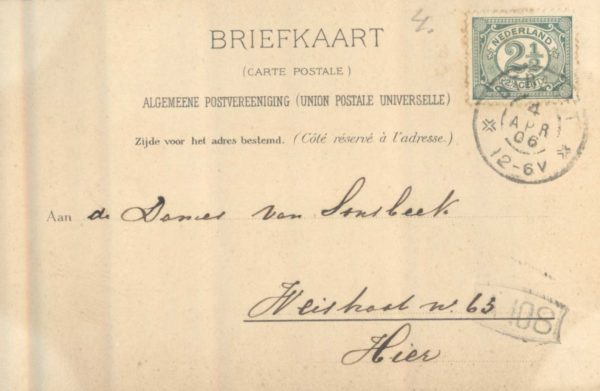 4.
BRIEFKAART
(CARTE POSTALE)
ALGEMEENE POSTVEREENIGING (UNION POSTALE UNIVERSELLE)
Zijde voor het adres bestemd. (Côté réservé à l'adresse.)
NEDERLAND
2½
CENT
4
APR
06
12-6V
Aan de Dames van Sonsbeek
63
Hier
108